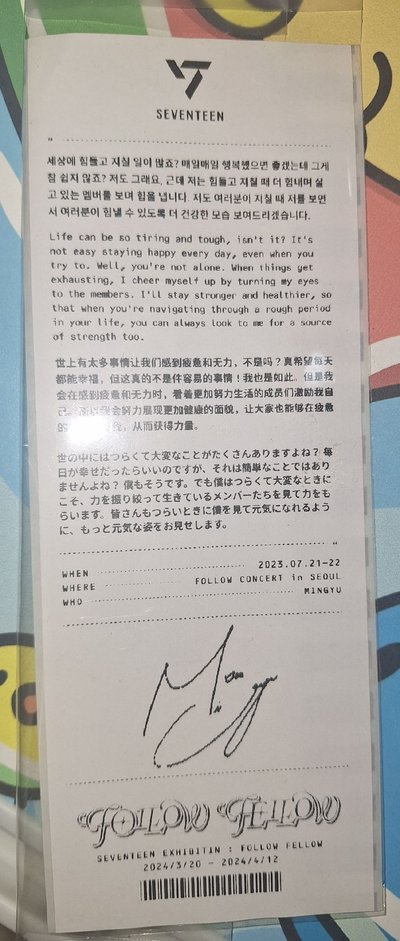 SEVENTEEN
"
세상에 힘들고 지칠 일이 많죠? 매일매일 행복했으면 좋겠는데 그게
참 쉽지 않죠? 저도 그래요. 근데 저는 힘들고 지칠 때 더 힘내며 살
고 있는 멤버를 보며 힘을 냅니다. 저도 여러분이 지칠 때 저를 보면
서 여러분이 힘낼 수 있도록 더 건강한 모습 보여드리겠습니다.
Life can be so tiring and tough, isn't it? It's
not easy staying happy every day, even when you
try to. Well, you're not alone. When things get
exhausting, I cheer myself up by turning my eyes
to the members. I'll stay stronger and healthier, so
that when you're navigating through a rough period
in your life, you can always look to me for a source
of strength too.
世上有太多事情让我们感到疲惫和无力，不是吗？真希望每天
都能幸福，但这真的不是件容易的事情！我也是如此。但是我
会在感到疲惫和无力时，看着更加努力生活的成员们激励我自
己。所以我会努力展现更加健康的面貌，让大家也能够在疲惫
的 我，从而获得力量。
世の中にはつらくて大変なことがたくさんありますよね？ 毎
日が幸せだったらいいのですが、それは簡単なことではあり
ませんよね？ 僕もそうです。でも僕はつらくて大変なときに
こそ、力を振り絞って生きているメンバーたちを見て力をも
らいます。皆さんもつらいときに僕を見て元気になれるよう
に、もっと元気な姿をお見せします。
"
WHEN 2023.07.21-22
WHERE FOLLOW CONCERT in SEOUL
WHO MINGYU
Min gyu
FOLLOW FELLOW
SEVENTEEN EXHIBITIN : FOLLOW FELLOW
2024/3/20 - 2024/4/12